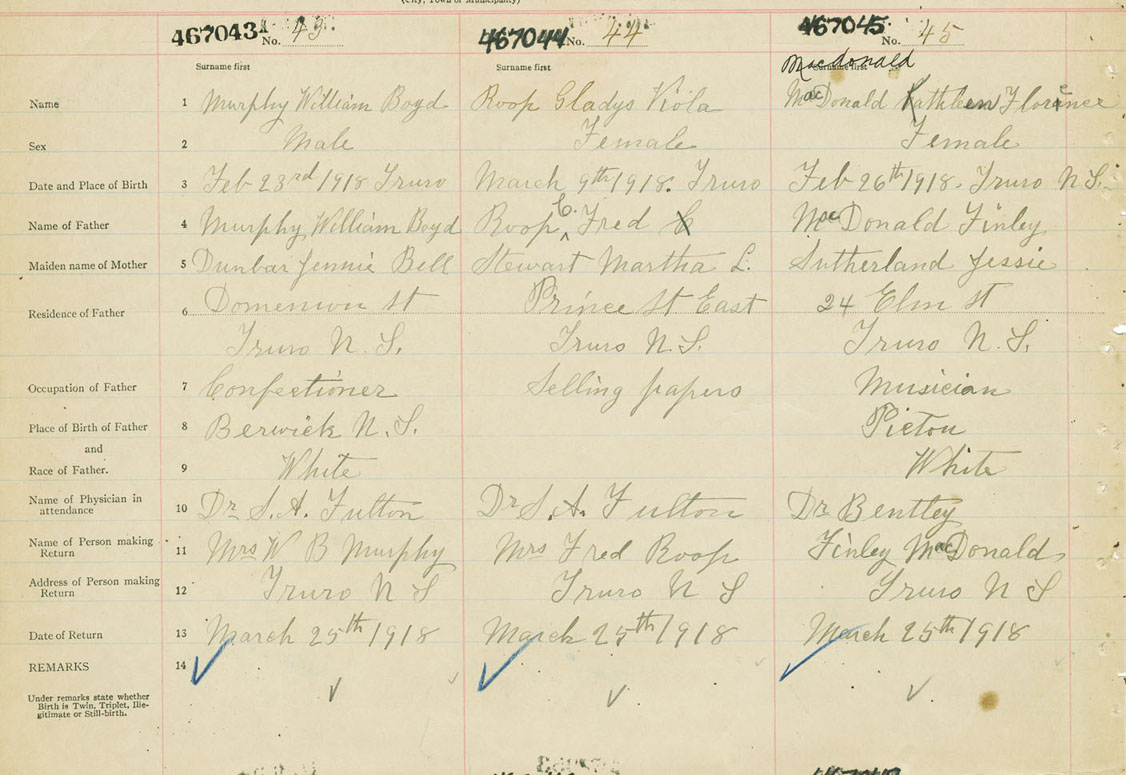 (City, Town or Municipality)
467043 No. 43. 467044 No. 44 467045 No. 45
Surname first Surname first Surname first
Macdonald
Name 1 Murphy William Boyd Roop Gladys Viola MacDonald Kathleen Florence
Sex 2 Male Female Female
Date and Place of Birth 3 Feb 23rd 1918 Truro March 9th 1918. Truro Feb 26th 1918. Truro N.S.
Name of Father 4 Murphy William Boyd Roop C. Fred MacDonald Finley
Maiden name of Mother 5 Dunbar Jennie Bell Stewart Martha L. Sutherland Jessie
Residence of Father 6 Domenion St Prince St East 24 Elm St
Truro N.S. Truro N.S. Truro N.S.
Occupation of Father 7 Confectioner Selling papers Musician
Place of Birth of Father 8 Berwick N.S. Picton
and
Race of Father. 9 White White
Name of Physician in attendance 10 Dr S.A. Fulton Dr S.A. Fulton Dr Benttey
Name of Person making Return 11 Mrs W B Murphy Mrs Fred Roop Finley MacDonald
Address of Person making Return 12 Truro N S Truro N S Truro N S
Date of Return 13 March 25th 1918 March 25th 1918 March 25th 1918
REMARKS 14
Under remarks state whether
Birth is Twin, Triplet, Ille-
gitimate or Still-birth.